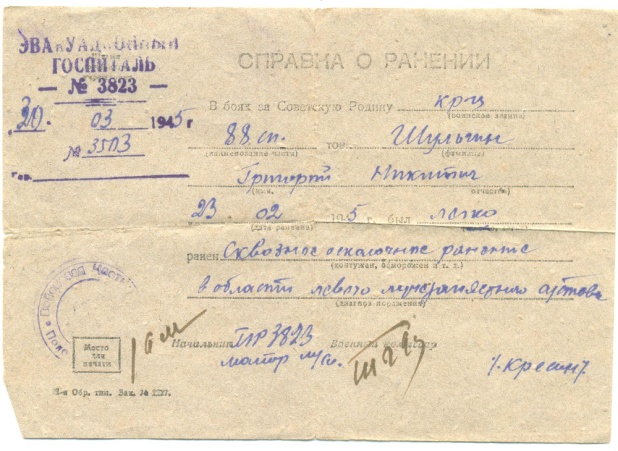 ЭВАКУАЦИОННЫЙ
ГОСПИТАЛЬ
— № 3823 —
20. 03 1945 г
№ 3503
гор.
СПРАВКА О РАНЕНИИ
В боях за Советскую Родину крц
(воинское звание)
88 сп. тов. Шульгин
(наименование части) (фамилия)
Григорий Никитич
(имя, отчество)
23. 02 1945 г. был легко
(дата ранения)
ранен Сквозное осколочное ранение
(контужен, обморожен и т. д.)
в области левого сустава
(диагноз поражения)
Место
для
печати
Начальник ЭГ 3823
майор м/сл.
Военный комиссар
/Кресин/
Обр. тип. Зак. №